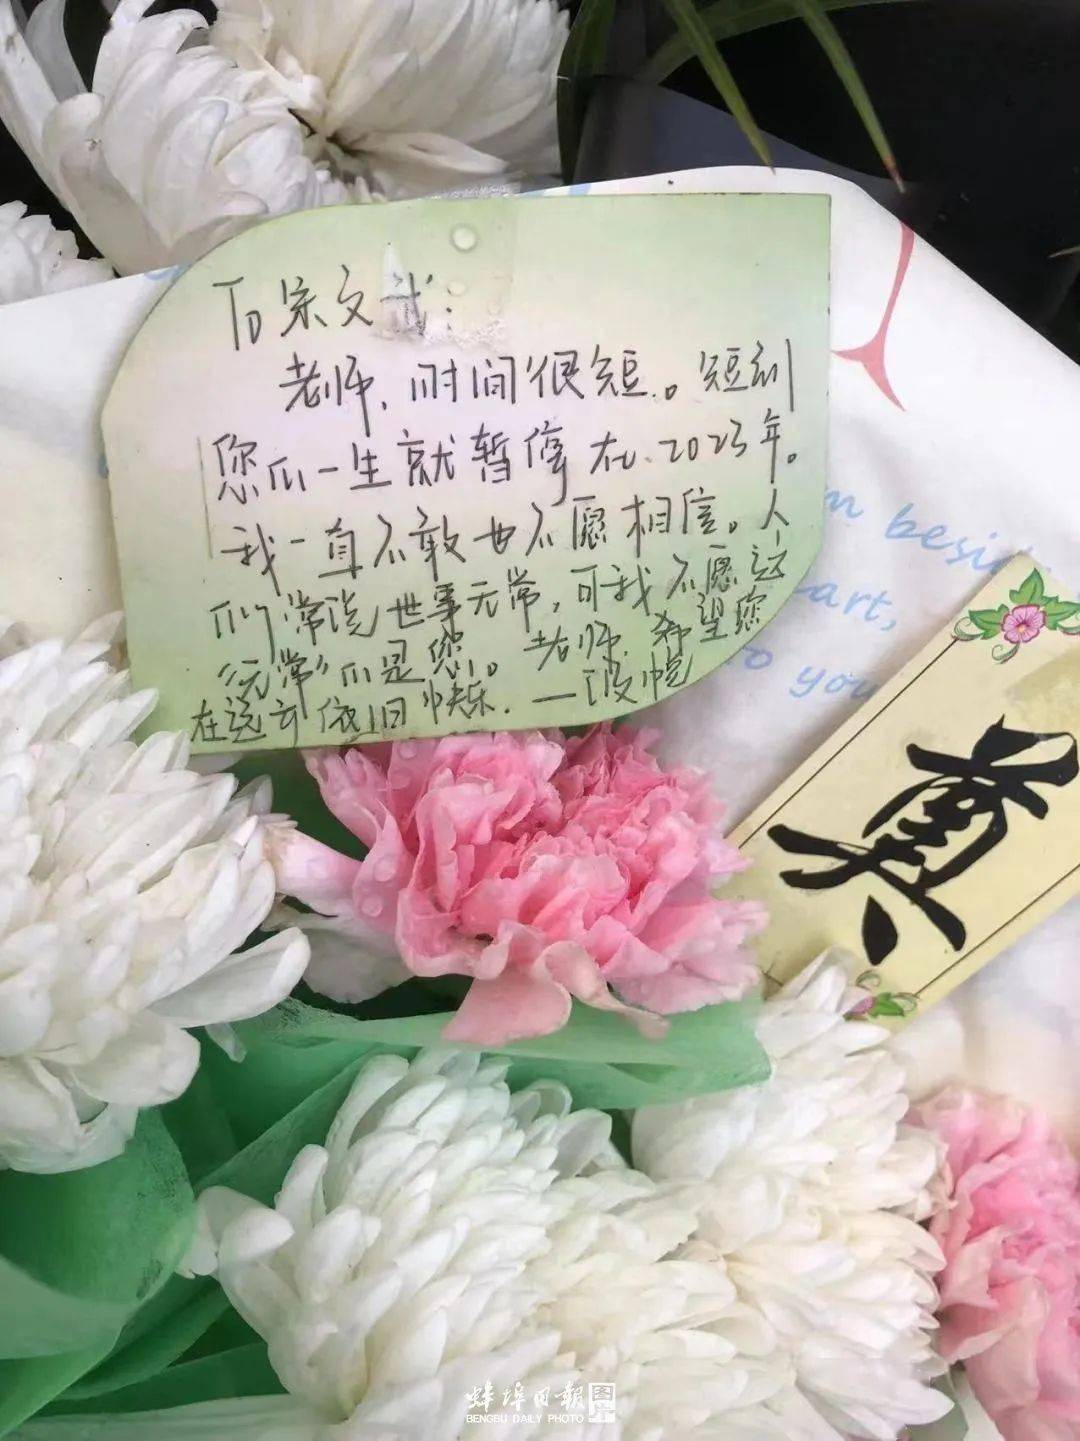 To 宋文武:
老师,时间很短。短到
您的一生就暂停在.2023年。
我一直不敢也不愿相信。人
们常说世事无常,可我不愿这
“无常”的是您。老师,希望您
在远方依旧快乐.一
m besid
art,
to you
奠
蚌埠日報
BENGBU DAILY PHOTO